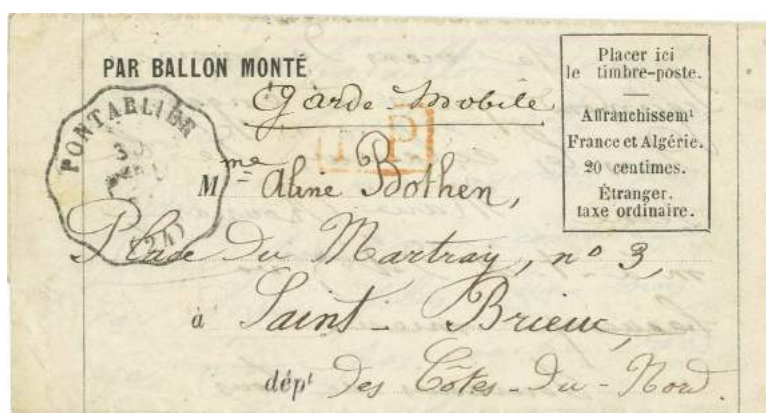 PAR BALLON MONTÉ
Placer ici
le timbre-poste.
Affranchissemt
France et Algérie.
20 centimes.
Étranger.
taxe ordinaire.
Garde Mobile
PP
PONTARLIER
30
(24)
Mme Aline Bothen,
Place du Martray, no 3,
à Saint-Brieuc,
dépt des Côtes-du-Nord.